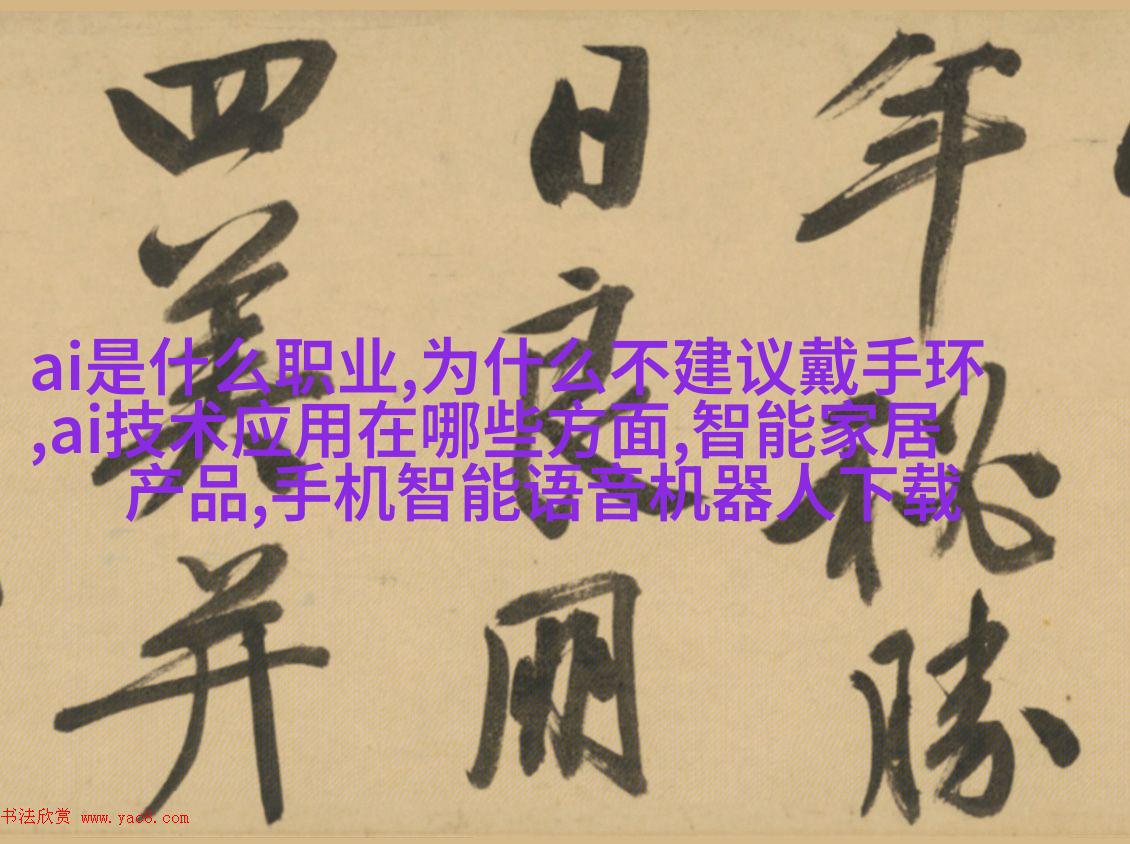 年秘勝
日良朋
四美并
ai是什么职业,为什么不建议戴手环
,ai技术应用在哪些方面,智能家居
产品,手机智能语音机器人下载
书法欣赏 www.yac8.com